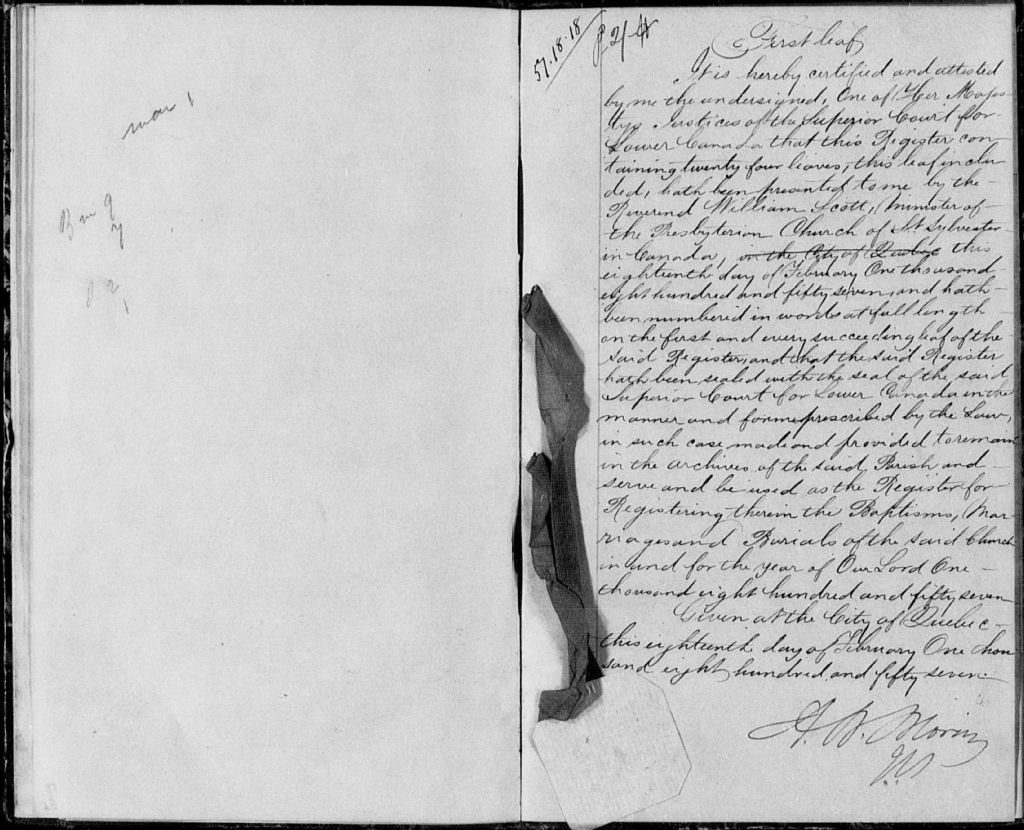 mar 1
B m 9
7
2
1
57.18.18
First leaf
It is hereby certified and attested
by me the undersigned, One of Her Majes-
tys Justices of the Superior Court for
Lower Canada that this Register con-
taining twenty four leaves, this leaf inclu
ded, hath been presented to me by the
Reverend William Scott, Minister of
the Presbyterian Church of St Sylvester
in Canada, in the City of Quebec this
eighteenth day of February One thousand
eight hundred and fifty seven, and hath
been numbered in words at full length
on the first and every succeeding leaf of the
said Register, and that the said Register
hath been sealed with the seal of the said
Superior Court for Lower Canada in the
manner and forme prescribed by the Law,
in such case made and provided to remain
in the archives of the said Parish and
serve and be used as the Register for
Registering therein the Baptisms, Mar-
riages and Burials of the said Church
in and for the year of Our Lord One
thousand eight hundred and fifty seven
Given at the City of Quebec
this eighteenth day of February One thou
sand eight hundred and fifty seven.
A. N. Morin